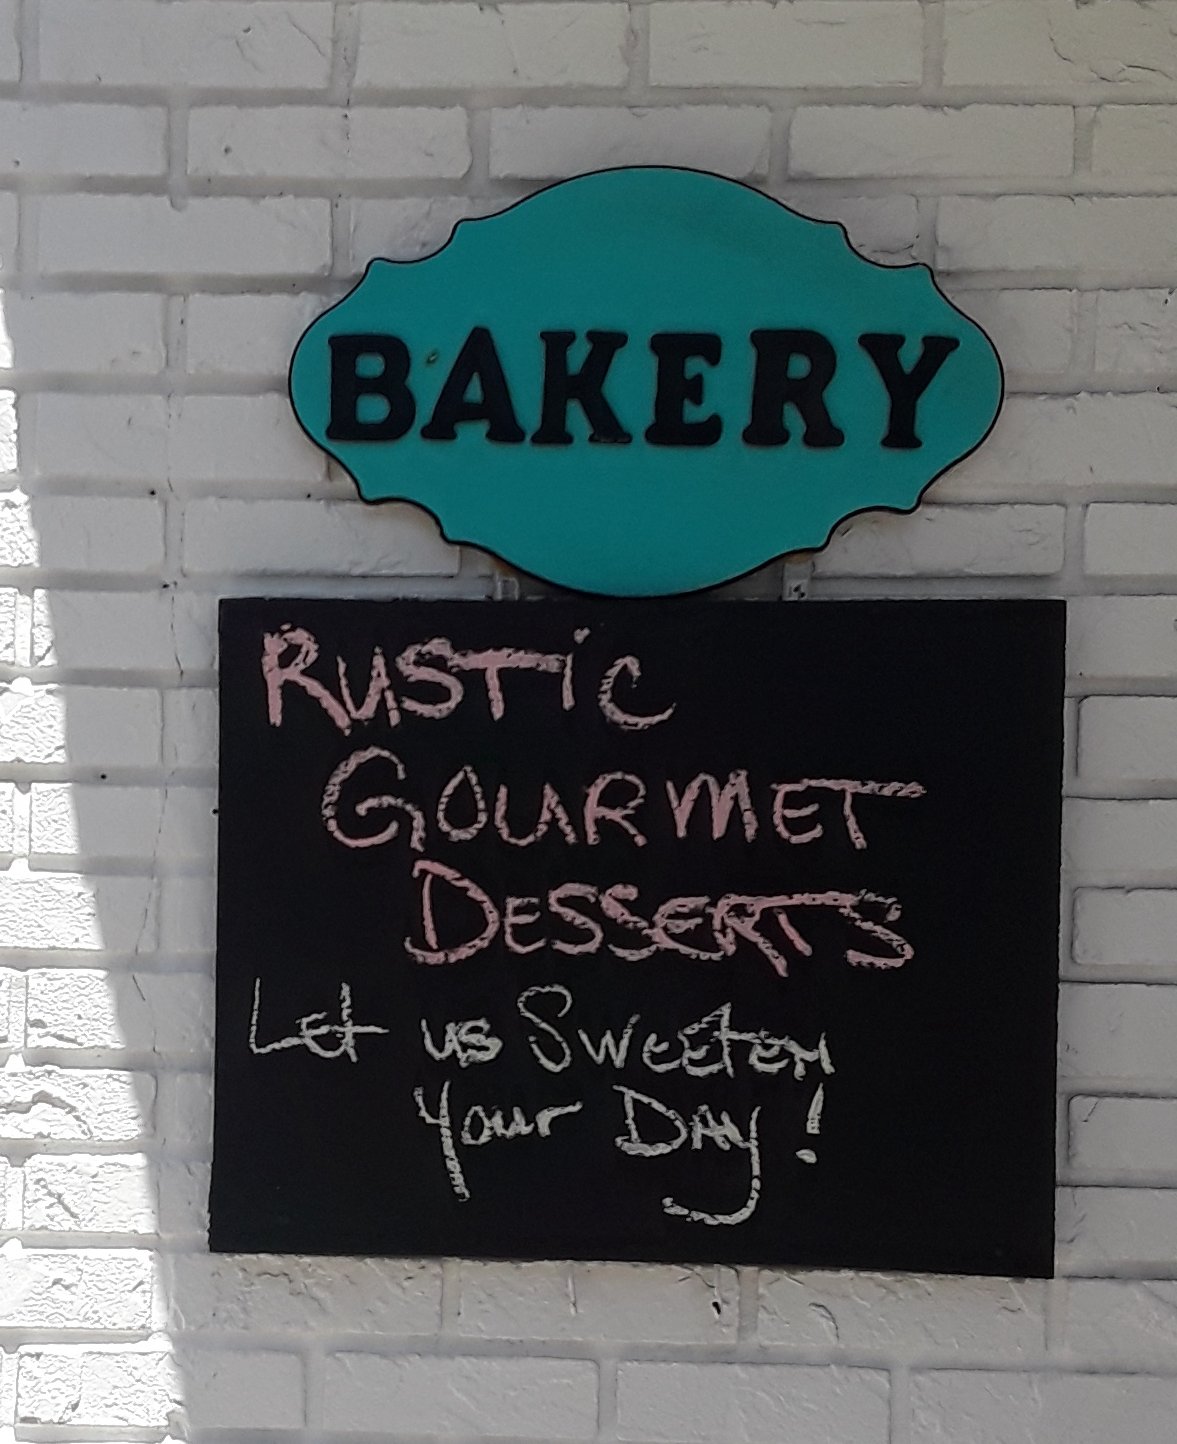 BAKERY
RUSTiC
GOURMET
DESSERTS
LET us SWEETEN
Your DAy!